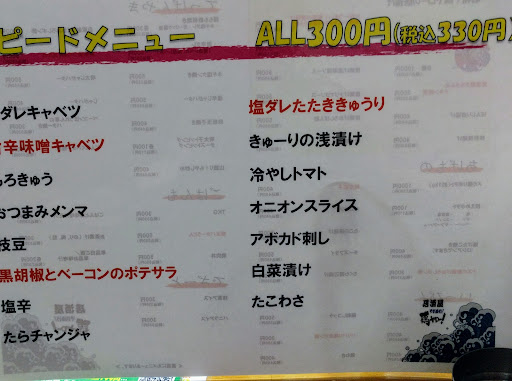 ピードメニュー ALL300円(税込330円)
ダレキャベツ
辛味噌キャベツ
ろきゅう
おつまみメンマ
枝豆
黒胡椒とベーコンのポテサラ
塩辛
たらチャンジャ
塩ダレたたききゅうり
きゅーりの浅漬け
冷やしトマト
オニオンスライス
アボカド刺し
白菜漬け
たこわさ
居酒屋